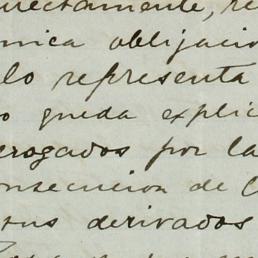 rectamente, re
nica obligacio
lo representa
o queda explic
erogados por la
onsecucion de C
stus derivados